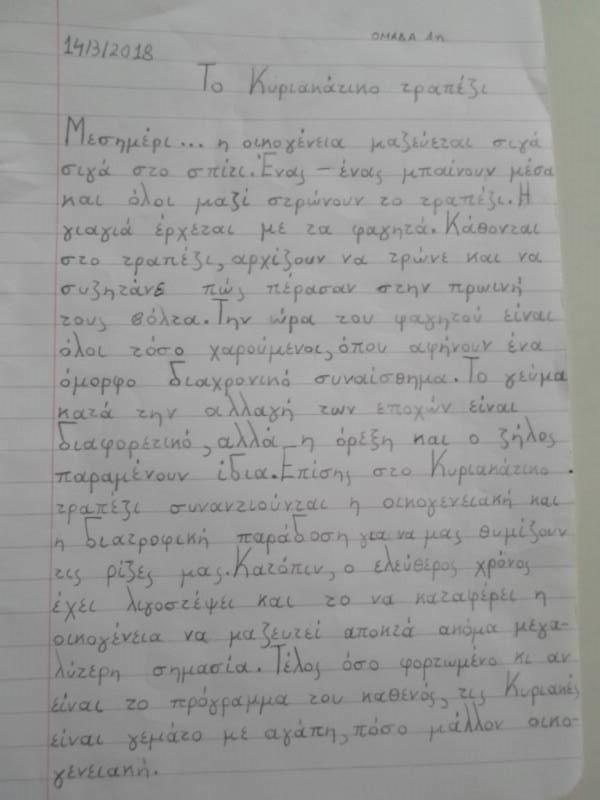 14/3/2018
ΟΜΑΔΑ 1η
Το Κυριακάτικο τραπέζι
Μεσημέρι... η οικογένεια μαζεύεται σιγά
σιγά στο σπίτι. Ένας - ένας μπαίνουν μέσα
και όλοι μαζί στρώνουν το τραπέζι. Η
γιαγιά έρχεται με τα φαγητά. Κάθονται
στο τραπέζι, αρχίζουν να τρώνε και να
συζητάνε πώς πέρασαν στην πρωινή
τους βόλτα. Την ώρα του φαγητού είναι
όλοι τόσο χαρούμενοι, όπου αφήνουν ένα
όμορφο διαχρονικό συναίσθημα. Το γεύμα
κατά την αλλαγή των εποχών είναι
διαφορετικό, αλλά η όρεξη και ο ζήλος
παραμένουν ίδια. Επίσης στο Κυριακάτικο
τραπέζι συναντιούνται η οικογενειακή και
η διατροφική παράδοση για να μας θυμίζουν
τις ρίζες μας. Κατόπιν, ο ελεύθερος χρόνος
έχει λιγοστέψει και το να καταφέρει η
οικογένεια να μαζευτεί αποκτά ακόμα μεγα-
λύτερη σημασία. Τέλος όσο φορτωμένο κι αν
είναι το πρόγραμμα του καθενός, τις Κυριακές
είναι γεμάτο με αγάπη, πόσο μάλλον οικο-
γενειακή.